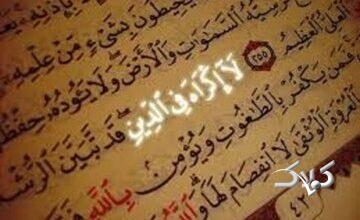 يحيطون بشيء من علمه إلا
كرسيه السموات والأرض ولا يئوده حفظهما
العلي العظيم ٢٥٥ لا إكراه في الدين قد تبين الرشد
فمن يكفر بالطغوت ويؤمن بالله فقد
العروة الوثقى لا انفصام لها والله
٤٢